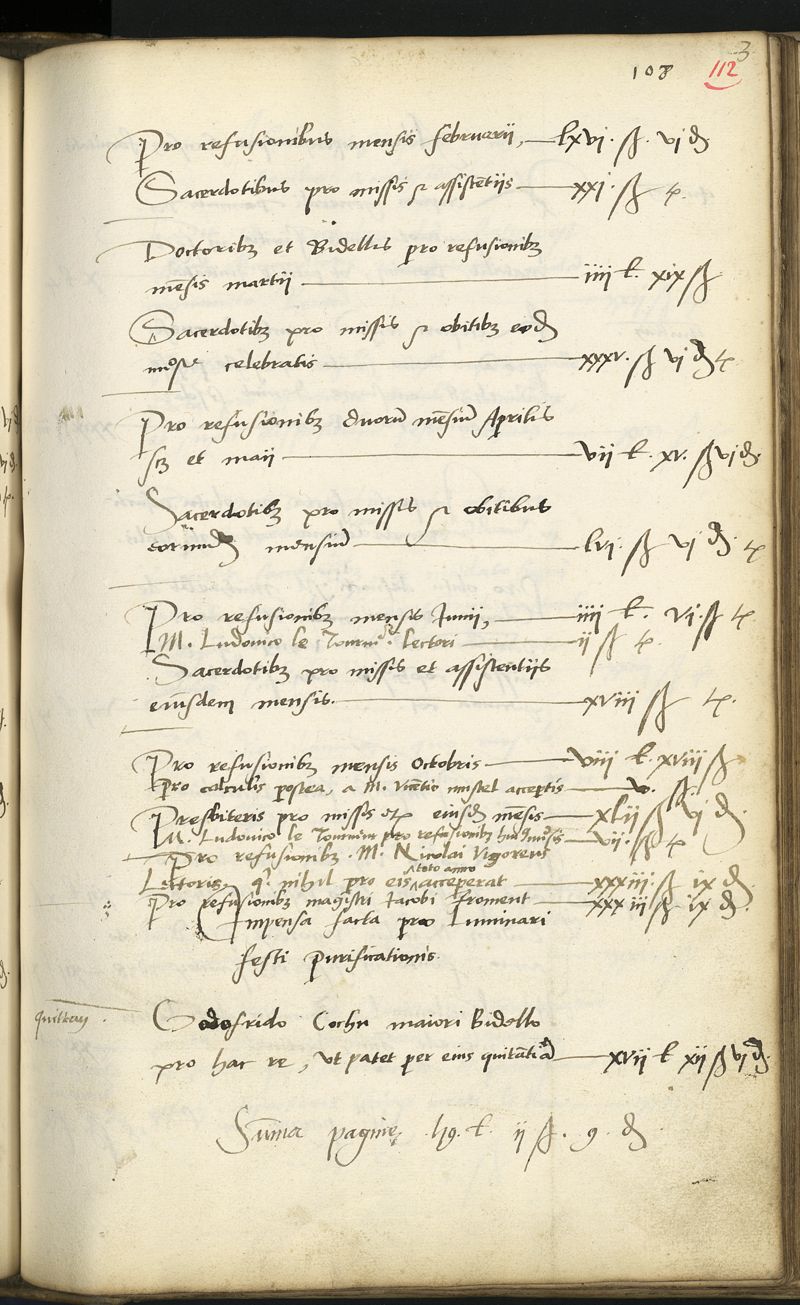 3
108 112
Pro refusionibus mensis februarii, lxvi. ß. vj d
Sacerdotibus pro missis et assistētiis xxi. ß t.
Doctoribꝫ et Bidellis pro refusionibꝫ
mēsis martii iiii l. xix ß
Sacerdotibꝫ pro missis et obitibꝫ eodē
celebratis xxxv. ß vj d t
Pro refusionibꝫ duorū mēsiū Aprilis
scꝫ et maii vii l. xv. ß vj d.
Sacerdotibꝫ pro missis et obitibus
eorundē mensiū lvi. ß vj d. t
Pro refusionibꝫ mensis Junii, iiii l. vi. ß t
M. Ludovico le lectori ii ß t.
Sacerdotibꝫ pro missis et assistentiis
eiusdem mensis. xviii ß t.
Pro refusionibꝫ mensis Octobris viii l. xviii ß
Pro calculis postea, a M. acceptis v. ß
Presbiteris pro missis etꝫ eiusdē mēsis xlii ß vj d
M. Ludovico le pro refusionibꝫ huiꝰ mēsis vii. ß t
Pro refusionibꝫ. M. Nicolai Vigoreus
toto anno
Lectoris, qͥ nihil pro eis acceperat xxxiii. ß ix d
Pro refusionibꝫ magistri Iacobi Froment xxxiii ß ix d.
Impensa facta pro Luminari
festi Purificationis.
quittan
Godofrido Cochu maiori Bidello
pro hac re, ut patet per eius quitātiā xvii l xii ß vj d.
Sūma pagine. l. ii ß. 9. d